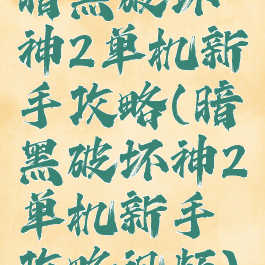 暗黑破坏
神2单机新
手攻略(暗
黑破坏神2
单机新手
攻略视频)